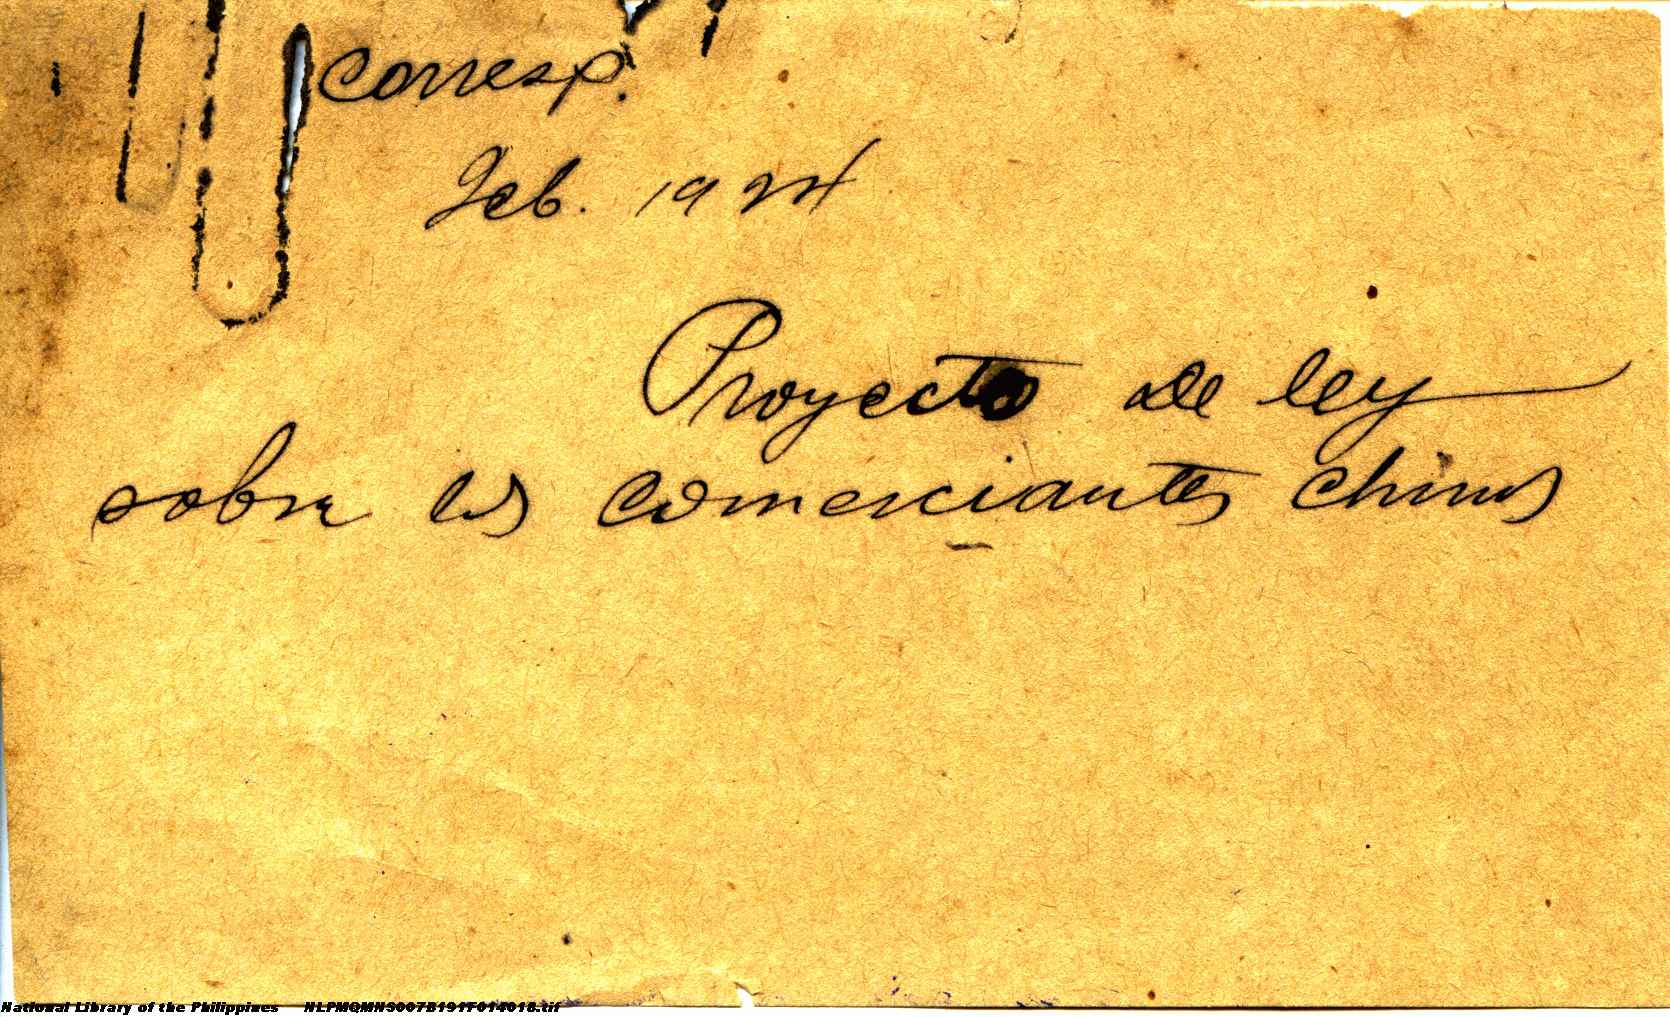 corresp.
Feb. 1924
Proyecto de ley
sobre los comerciantes chinos
National Library of the Philippines NLPMQMNS007B191F014018.tif